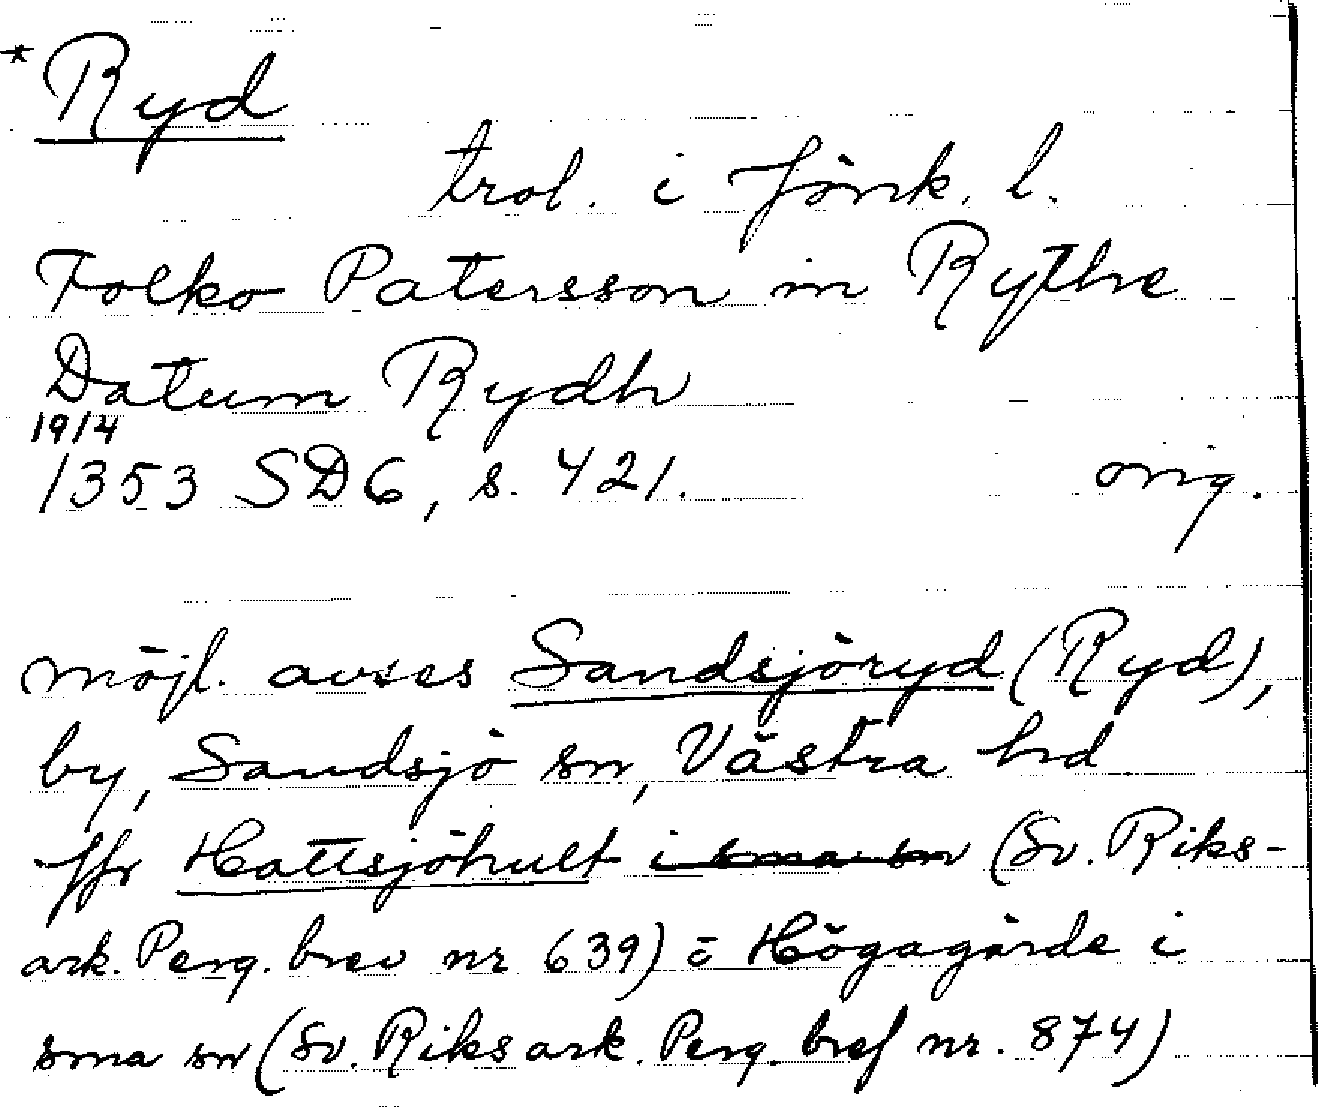 *Ryd
trol. i Jönk. l.
Folko Patersson in Rythe
Datum Rydh
19/4
1353 SD6, s. 421. orig.
möjl. avses Sandsjöryd (Ryd),
by, Sandsjö sn, Västra hd
jfr Hattsjöhult i sma sn (Sv. Riks-
ark. Perg. brev nr 639) o Högagärde i
sma sn (Sv. Riksark. Perg. bref nr. 874)